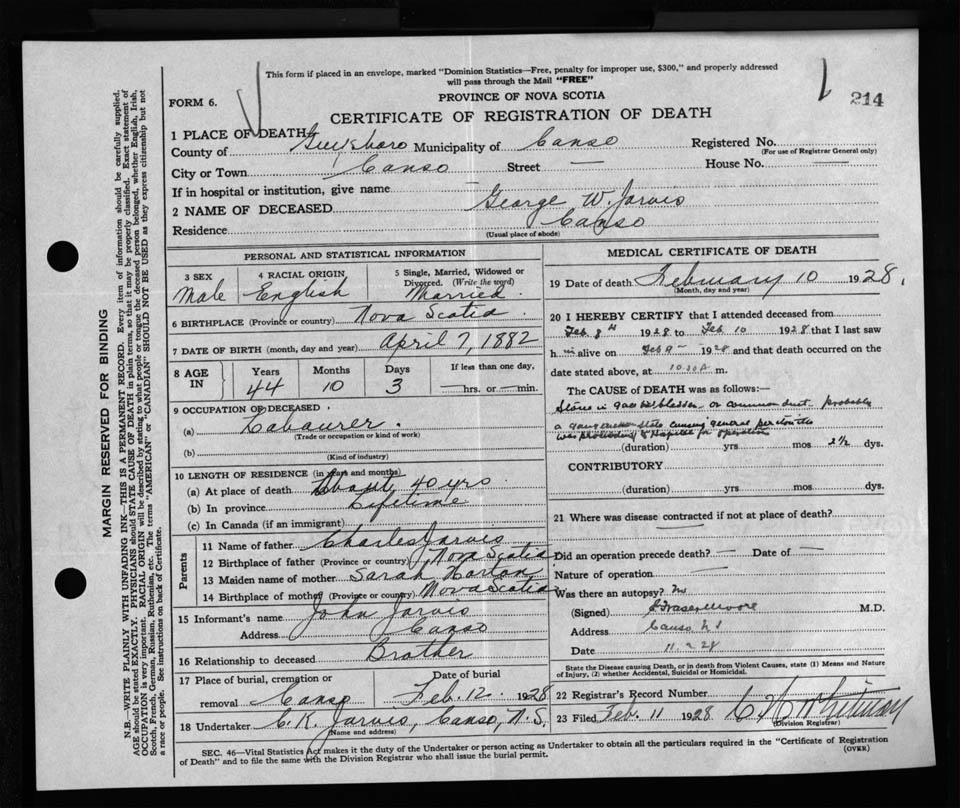 This form if placed in an envelope, marked "Dominion Statistics—Free, penalty for improper use, $300," and properly addressed
will pass through the Mail "FREE"
FORM 6.
PROVINCE OF NOVA SCOTIA
214
CERTIFICATE OF REGISTRATION OF DEATH
1 PLACE OF DEATH
County of Guysboro Municipality of Canso Registered No.
(For use of Registrar General only)
City or Town Canso Street — House No. —
If in hospital or institution, give name —
2 NAME OF DECEASED George W. Jarvis
Residence Canso
(Usual place of abode)
PERSONAL AND STATISTICAL INFORMATION
3 SEX 4 RACIAL ORIGIN 5 Single, Married, Widowed or
Divorced. (Write the word)
Male English Married.
6 BIRTHPLACE (Province or country) Nova Scotia.
7 DATE OF BIRTH (month, day and year) April 7, 1882
8 AGE IN Years Months Days If less than one day,
44 10 3 —hrs. or —min.
9 OCCUPATION OF DECEASED
(a) Labourer.
(Trade or occupation or kind of work)
(b)
(Kind of industry)
10 LENGTH OF RESIDENCE (in years and months)
(a) At place of death About 40 yrs.
(b) In province Lifetime
(c) In Canada (if an immigrant)
Parents
11 Name of father Charles Jarvis
12 Birthplace of father (Province or country) Nova Scotia
13 Maiden name of mother Sarah Horton
14 Birthplace of mother (Province or country) Nova Scotia
15 Informant's name John Jarvis
Address Canso
16 Relationship to deceased Brother
17 Place of burial, cremation or Date of burial
removal Canso Feb. 12. 1928
18 Undertaker C. K. Jarvis, Canso, N.S.
(Name and address)
MEDICAL CERTIFICATE OF DEATH
19 Date of death February 10 1928.
(Month, day and year)
20 I HEREBY CERTIFY that I attended deceased from
Feb 8th 1928 to Feb 10 1928 that I last saw
h im alive on Feb 9 1928 and that death occurred on the
date stated above, at 10.30 P. m.
The CAUSE of DEATH was as follows:—
Stone in gall bladder or common duct. Probably
a gangrenous state causing general peritonitis
was proceeding to Hospital for operation
(duration) yrs mos 2½ dys.
CONTRIBUTORY
(duration) yrs mos dys.
21 Where was disease contracted if not at place of death?
Did an operation precede death? — Date of —
Nature of operation —
Was there an autopsy? No
(Signed) Moore M.D.
Address Canso N S
Date 11 - 2 - 28
State the Disease causing Death, or in death from Violent Causes, state (1) Means and Nature
of Injury, (2) whether Accidental, Suicidal or Homicidal.
22 Registrar's Record Number
23 Filed Feb. 11 1928 C H Whitman
(Division Registrar)
SEC. 46—Vital Statistics Act makes it the duty of the Undertaker or person acting as Undertaker to obtain all the particulars required in the "Certificate of Registration
of Death" and to file the same with the Division Registrar who shall issue the burial permit.
(OVER)
MARGIN RESERVED FOR BINDING
N.B.—WRITE PLAINLY WITH UNFADING INK—THIS IS A PERMANENT RECORD. Every item of information should be carefully supplied.
AGE should be stated EXACTLY. PHYSICIANS should STATE CAUSE OF DEATH in plain terms, so that it may be properly classified. Exact statement of
OCCUPATION is very important. RACIAL ORIGIN will be described by stating to what people or tongue the deceased person belonged, whether English, Irish,
Scotch, French, German, Russian, Ruthenian, etc. The terms "AMERICAN" or "CANADIAN" SHOULD NOT BE USED as they express citizenship but not
a race or people. See instructions on back of Certificate.